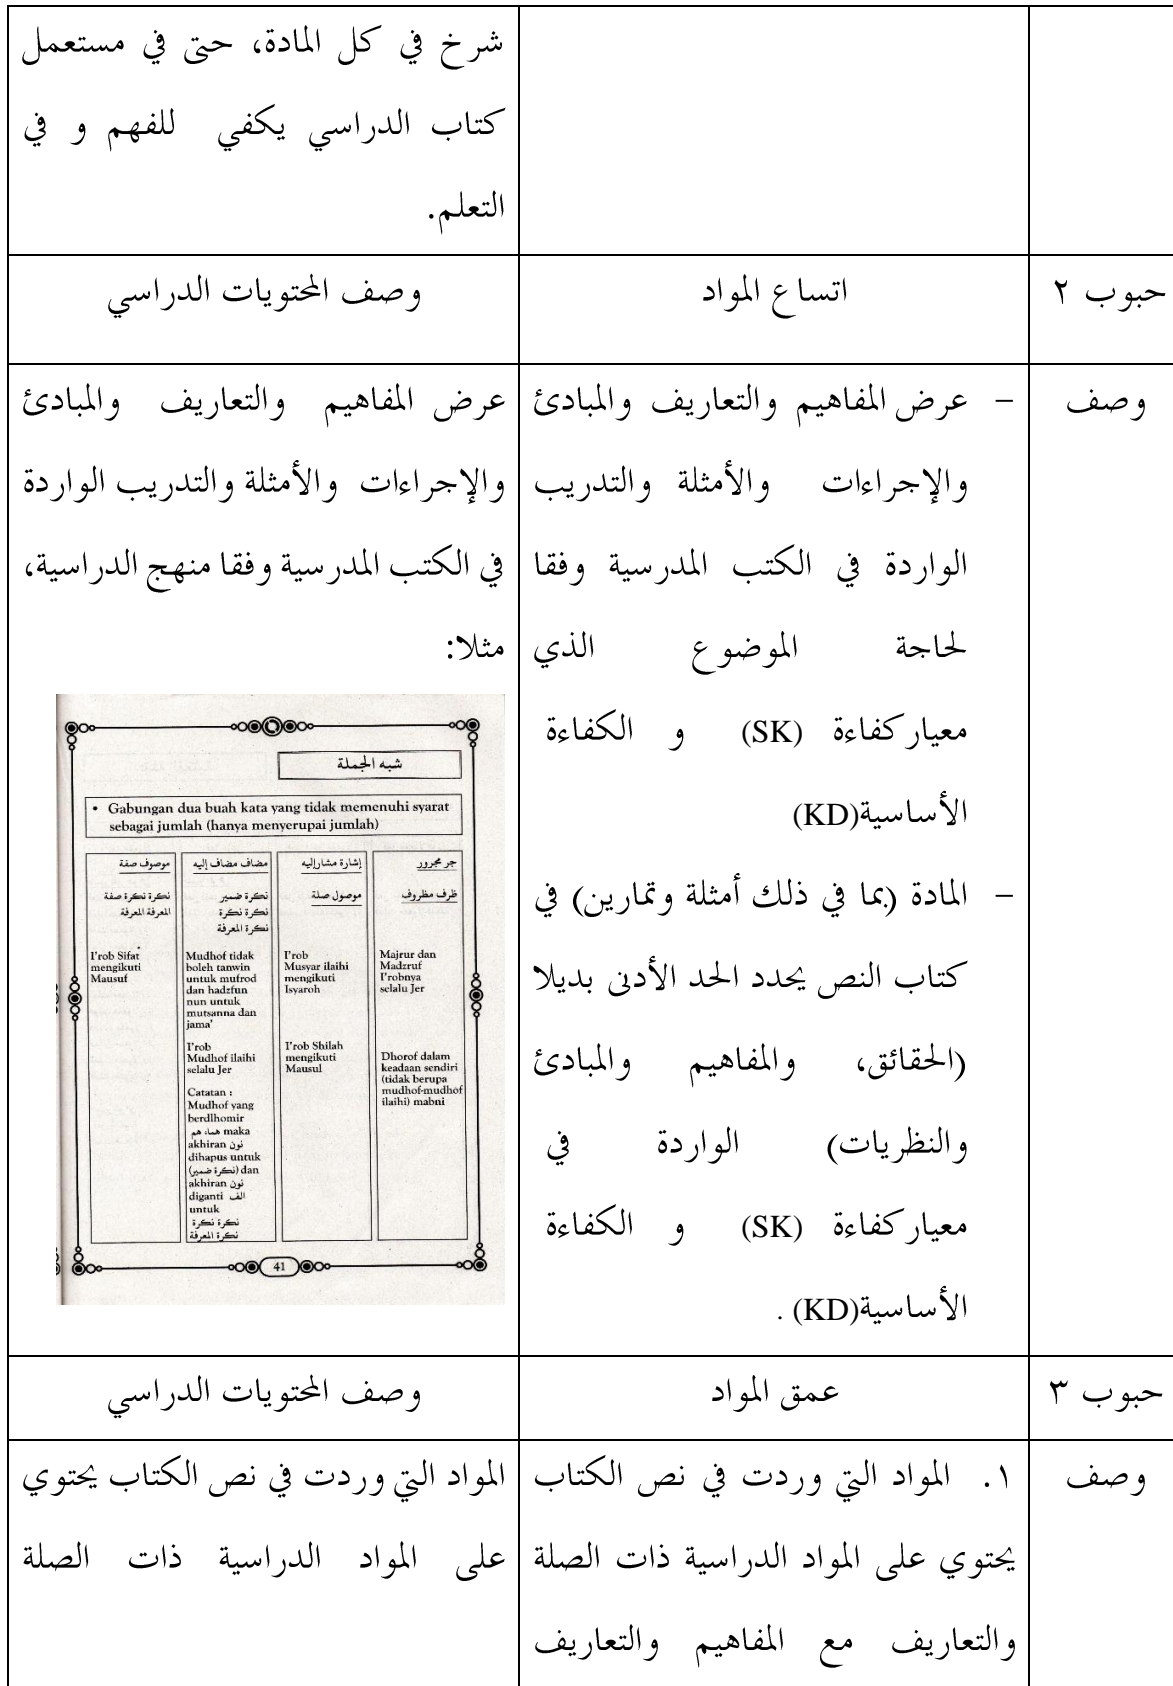 شرخ في كل المادة، حتى في مستعمل
كتاب الدراسي يكفي للفهم و في
التعلم.
حبوب ٢
اتساع المواد
وصف المحتويات الدراسي
وصف
– عرض المفاهيم والتعاريف والمبادئ
والإجراءات والأمثلة والتدريب
الواردة في الكتب المدرسية وفقا
لحاجة الموضوع الذي
معيار كفاءة (SK) و الكفاءة
الأساسية(KD)
– المادة (بما في ذلك أمثلة وتمارين) في
كتاب النص يحدد الحد الأدنى بديلا
(الحقائق، والمفاهيم والمبادئ
والنظريات) الواردة في
معيار كفاءة (SK) و الكفاءة
الأساسية(KD) .
عرض المفاهيم والتعاريف والمبادئ
والإجراءات والأمثلة والتدريب الواردة
في الكتب المدرسية وفقا منهج الدراسية،
مثلا:
شبه الجملة
• Gabungan dua buah kata yang tidak memenuhi syarat
sebagai jumlah (hanya menyerupai jumlah)
جر مجرور
ظرف مظروف
Majrur dan
Madzruf
I'robnya
selalu Jer
Dhorof dalam
keadaan sendiri
(tidak berupa
mudhof-mudhof
ilaihi) mabni
إشارة مشارإليه
موصول صلة
I'rob
Musyar ilaihi
mengikuti
Isyaroh
I'rob Shilah
mengikuti
Mausul
مضاف مضاف إليه
نكرة ضمير
نكرة نكرة
نكرة المعرفة
Mudhof tidak
boleh tanwin
untuk mufrod
dan hadzfun
nun untuk
mutsanna dan
jama'
I'rob
Mudhof ilaihi
selalu Jer
Catatan :
Mudhof yang
berdlhomir
هما، هم maka
akhiran نون
dihapus untuk
(نكرة ضمير) dan
akhiran نون
diganti الف
untuk
نكرة نكرة
نكرة المعرفة
موصوف صفة
نكرة نكرة صفة
المعرفة المعرفة
I'rob Sifat
mengikuti
Mausuf
41
حبوب ٣
عمق المواد
وصف المحتويات الدراسي
وصف
١. المواد التي وردت في نص الكتاب
يحتوي على المواد الدراسية ذات الصلة
والتعاريف مع المفاهيم والتعاريف
المواد التي وردت في نص الكتاب يحتوي
على المواد الدراسية ذات الصلة